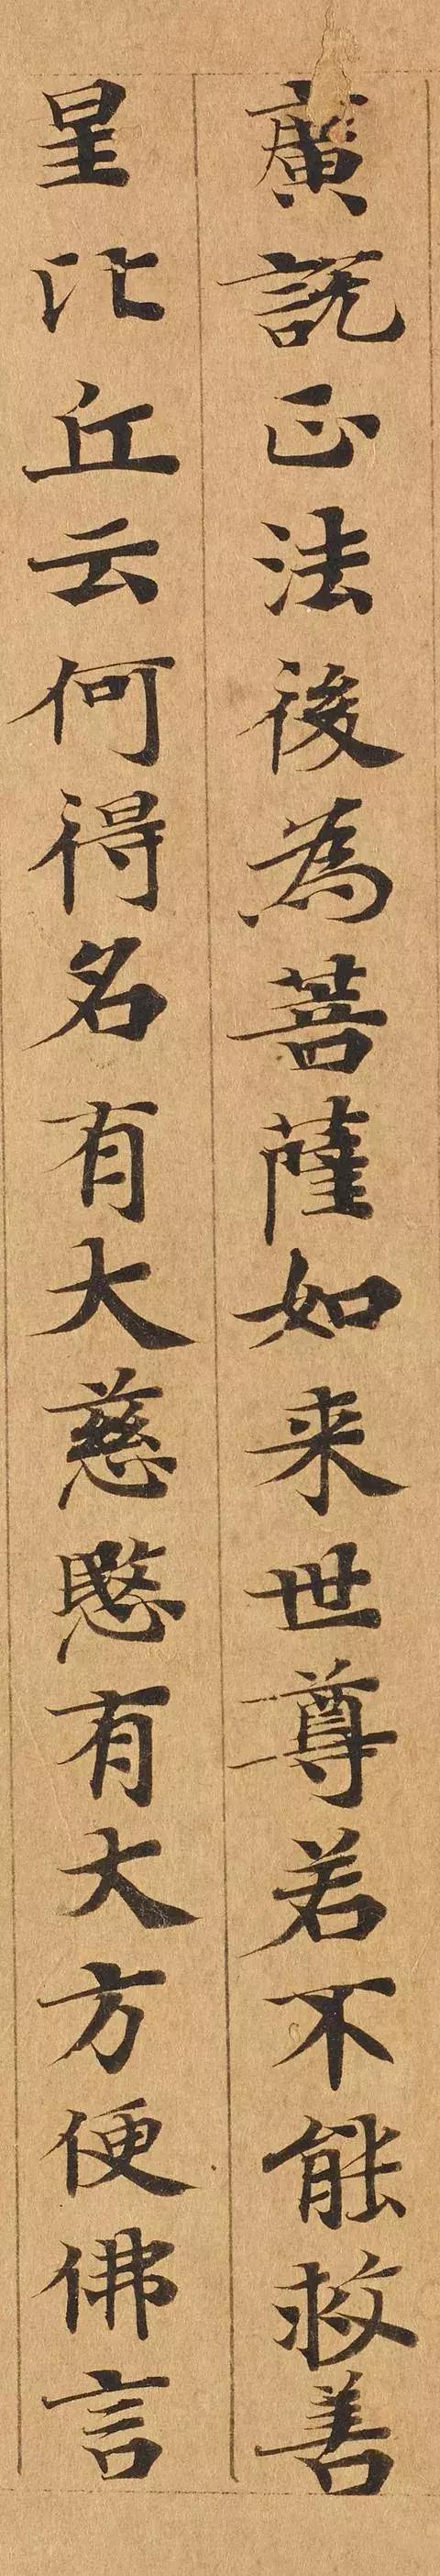 廣説正法後為菩薩如来世尊若不能救善
星比丘云何得名有大慈愍有大方便佛言